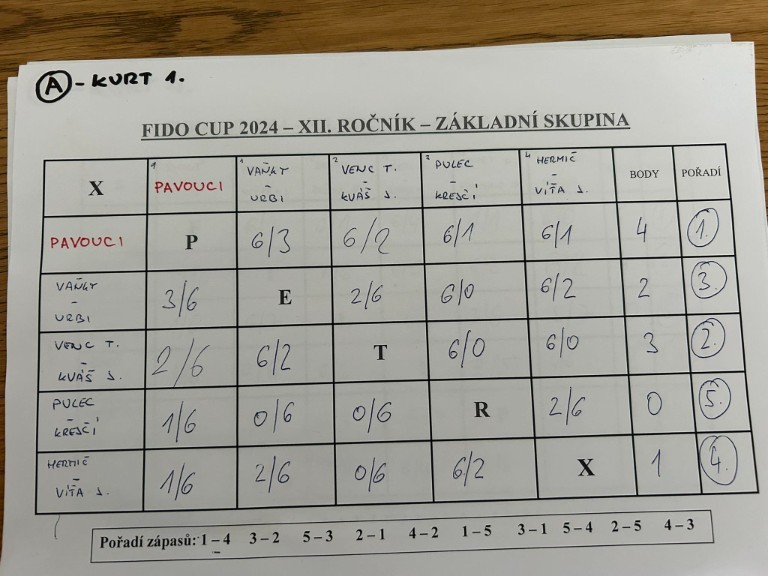 A - KURT 1.
FIDO CUP 2024 – XII. ROČNÍK – ZÁKLADNÍ SKUPINA
X 1 PAVOUCI 1 VAŇKY - URBI 2 VENC T. - KVÁŠ J. 3 PULEC - KREJČÍ 4 HERMIČ - VÍŤA J. BODY POŘADÍ
PAVOUCI P 6/3 6/2 6/1 6/1 4 1.
VAŇKY - URBI 3/6 E 2/6 6/0 6/2 2 3.
VENC T. - KVÁŠ J. 2/6 6/2 T 6/0 6/0 3 2.
PULEC - KREJČÍ 1/6 0/6 0/6 R 2/6 0 5.
HERMIČ - VÍŤA J. 1/6 2/6 0/6 6/2 X 1 4.
Pořadí zápasů: 1 – 4 3 – 2 5 – 3 2 – 1 4 – 2 1 – 5 3 – 1 5 – 4 2 – 5 4 – 3